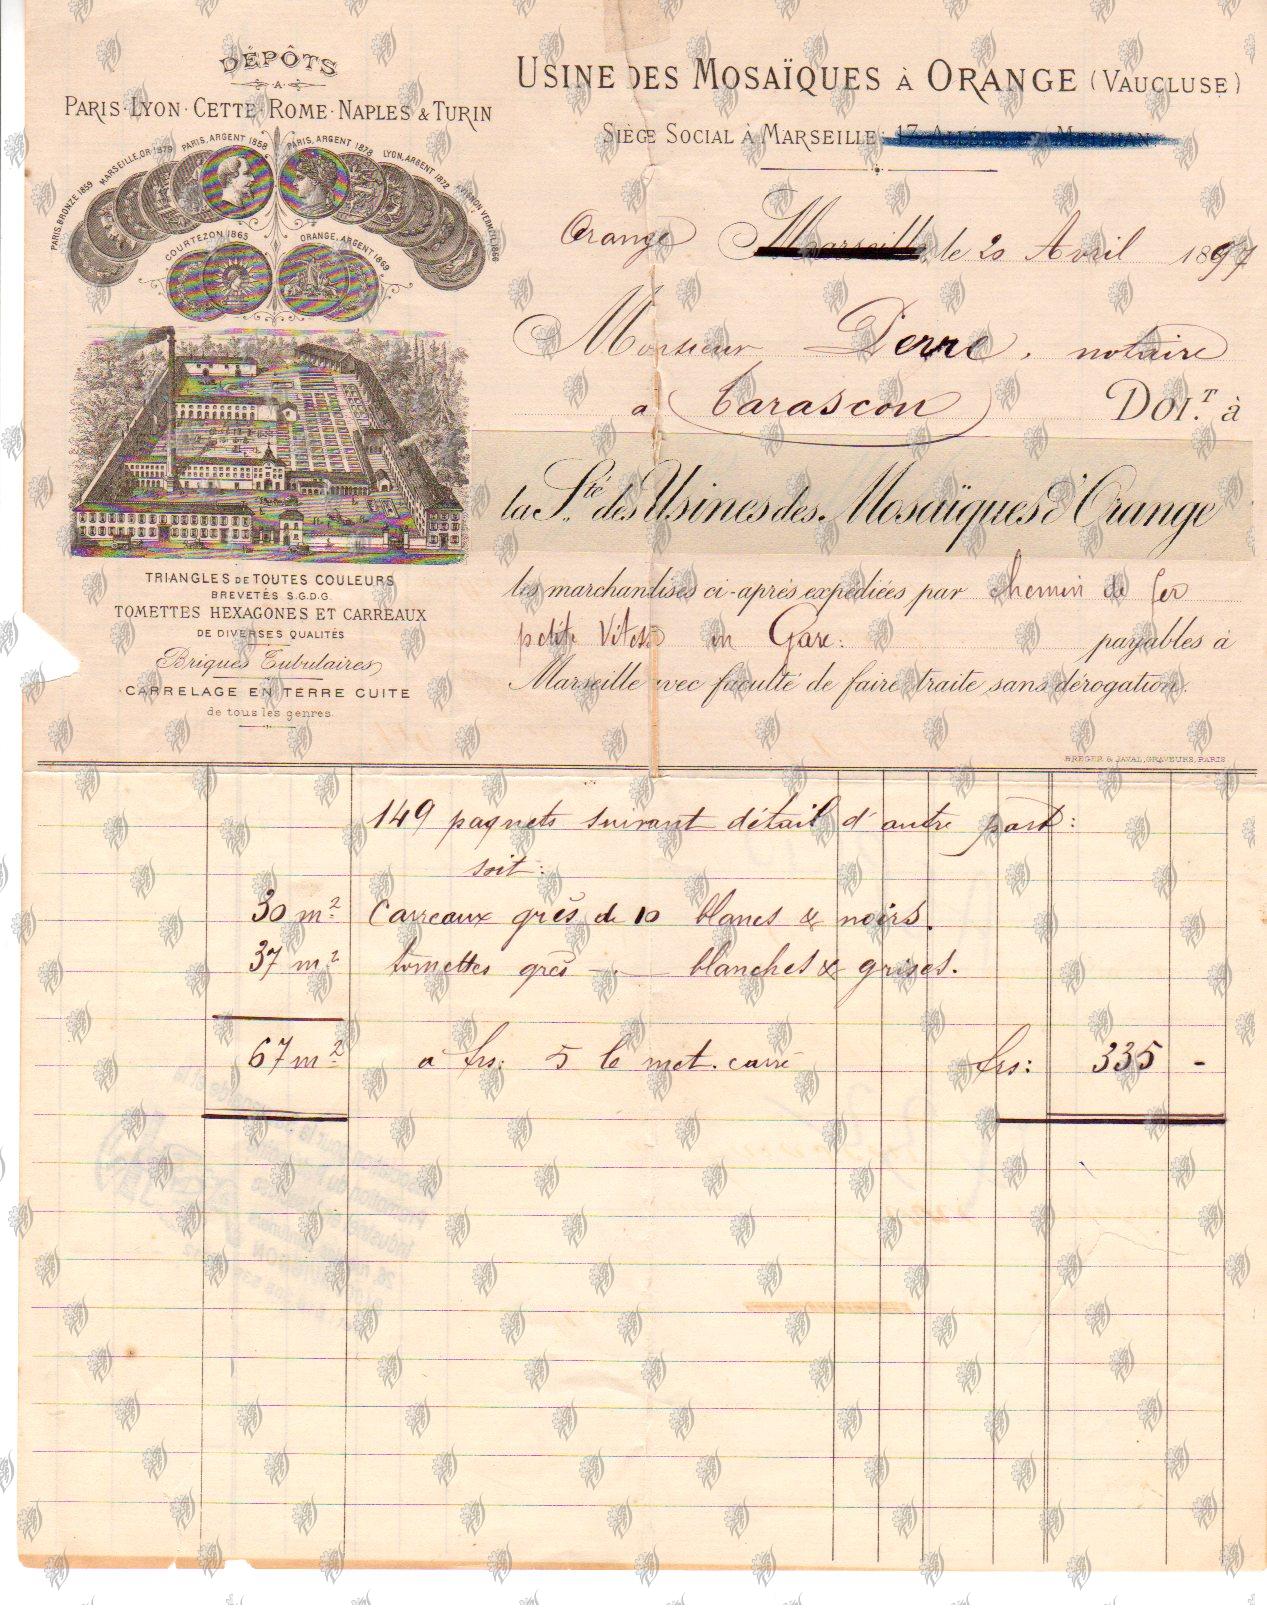 DÉPÔTS
A
PARIS·LYON·CETTE·ROME·NAPLES & TURIN
PARIS, BRONZE 1859
MARSEILLE, OR 1879
PARIS, ARGENT 1858
PARIS, ARGENT 1878
LYON, ARGENT 1872
AVIGNON VERMEIL 1866
COURTEZON 1865
ORANGE, ARGENT 1869
TRIANGLES DE TOUTES COULEURS
BREVETÉS S.G.D.G.
TOMETTES HEXAGONES ET CARREAUX
DE DIVERSES QUALITÉS
Briques Tubulaires
CARRELAGE EN TERRE CUITE
de tous les genres.
USINE DES MOSAÏQUES À ORANGE (VAUCLUSE)
SIÈGE SOCIAL À MARSEILLE: 17, ALLÉES DE MEILHAN
Orange Marseille, le 20 Avril 1897
Monsieur Derre, notaire
a (Tarascon) DOI.T à
la Sté des Usines des Mosaïques d'Orange
les marchandises ci-après expédiées par chemin de fer
petite Vitesse en Gare: payables à
Marseille avec faculté de faire traite sans dérogation.
BREGER & JAVAL, GRAVEURS, PARIS
149 paquets suivant détail d'autre part:
soit:
30 m² Carreaux grès de 10 blancs & noirs.
37 m² tomettes grès — . — blanches & grises.
67 m² a frs: 5 le met. carré frs: 335 -